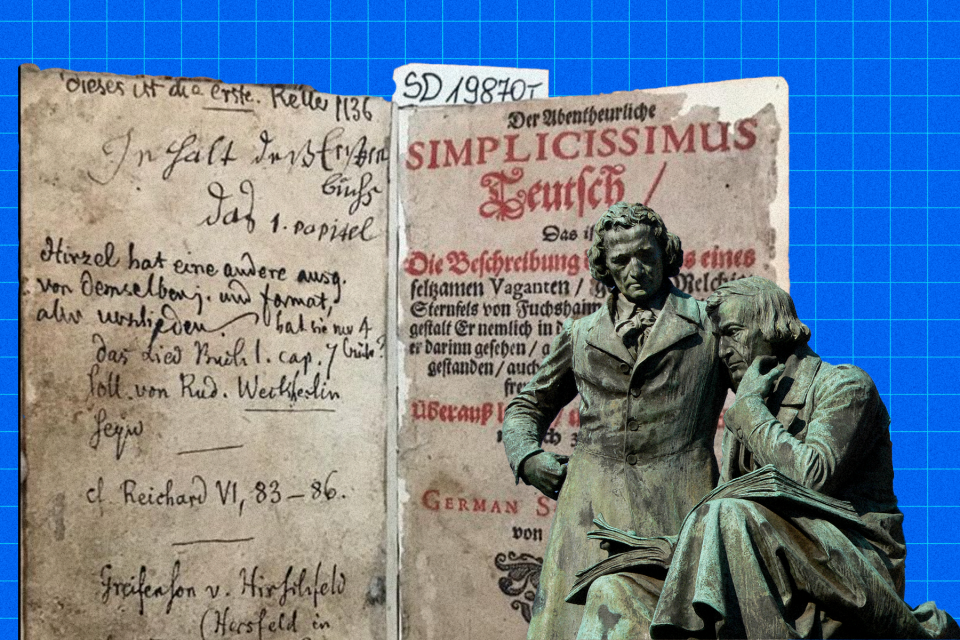 dieses ist die erste. Keller 1136
Inhalt deß Ersten
buchs
das 1. capitel
Hirzel hat eine andere ausg.
von demselben j. und format,
aber verschieden hat sie nur 4
das Lied Buch 1. cap. 7 büch?
soll von Rud. Weckherlin
seyn
cf. Reichard VI, 83–86.
Greifenson v. Hirschfeld
(Hersfeld in
SD 19870T
Der Abentheurliche
SIMPLICISSIMUS
Teutsch /
Das i
Die Beschreibung eines
seltzamen Vaganten / Melchior
Sternfels von Fuchshaim
gestalt Er nemlich in
er darinn gesehen /
gestanden / auch
Überauß
GERMAN S
von